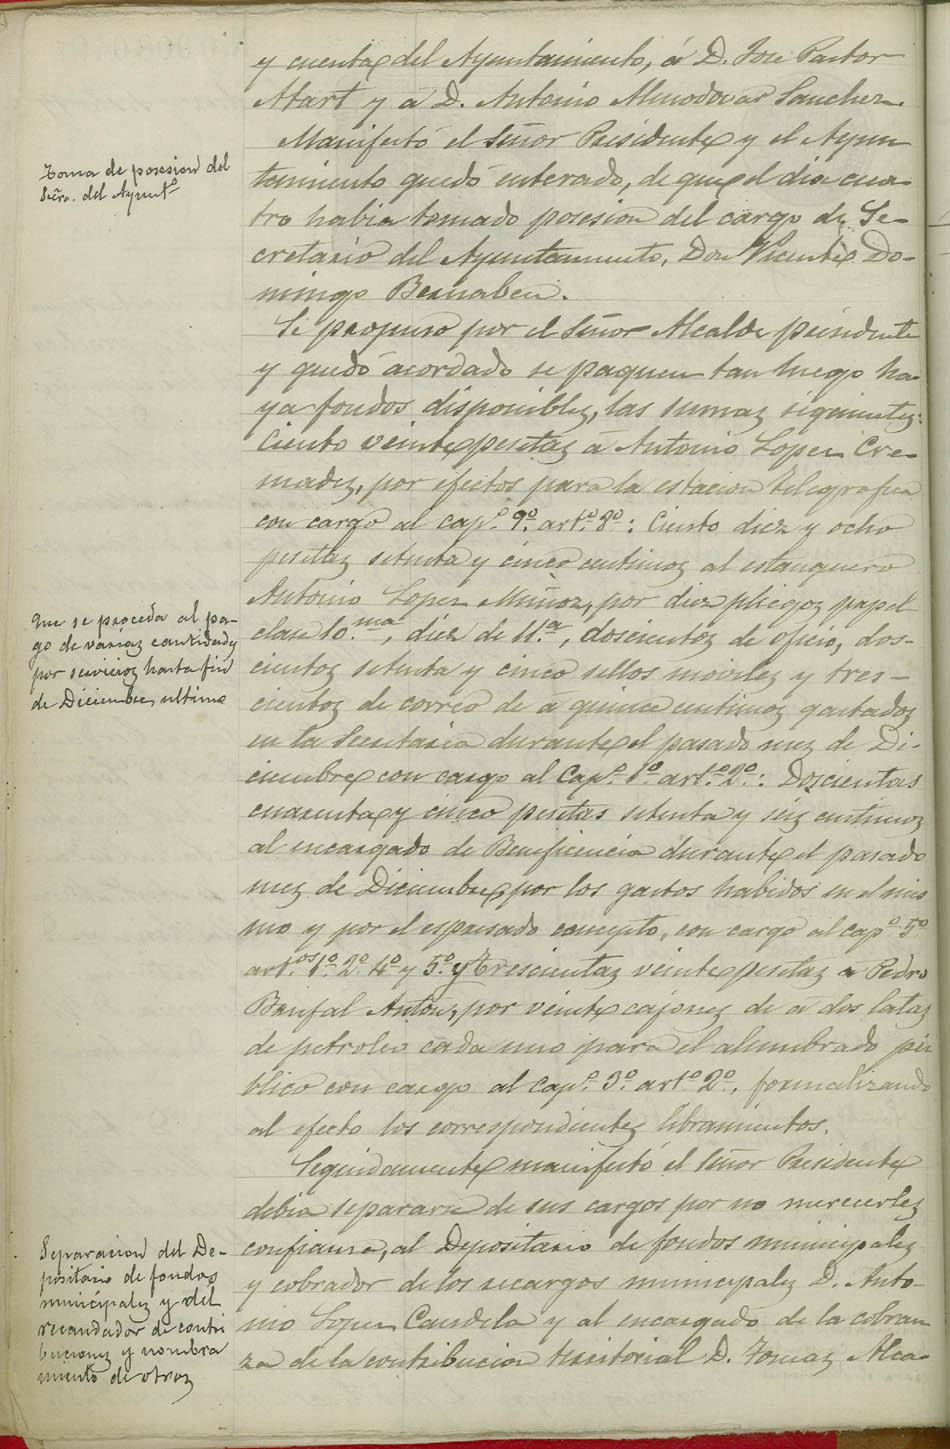 y cuentas del Ayuntamiento, á D. Jose Pastor
Mart y á D. Antonio Almodovar Sanchez.
Manifestó el Señor Presidente y el Ayun
tamiento quedó enterado, de que el dia cua-
tro habia tomado posesion del cargo de Se-
cretario del Ayuntamiento, Don Vicente Do-
mingo Bernabeu.
toma de posesion del
Secro. del Ayuntº
Se propuso por el Señor Alcalde presidente
y quedó acordado se paguen tan luego ha-
ya fondos disponibles, las sumas siguientes:
Ciento veinte pesetas á Antonio Lopez Cre-
mades, por efectos para la estacion telegrafica
con cargo al capº 9º artº 8º: Ciento diez y ocho
pesetas setenta y cinco centimos al estanquero
Antonio Lopez Muñoz, por diez pliegos papel
clase 10.ma, diez de 11.a, doscientos de oficio, dos-
cientos setenta y cinco sellos moviles y tres-
cientos de correo de a quince centimos gastados
en la Secretaria durante el pasado mes de Di-
ciembre con cargo al Capº 1º artº 2º: Doscientas
cuarenta y cinco pesetas setenta y seis centimos
al encargado de Beneficencia durante el pasado
mes de Diciembre por los gastos habidos en el mis
mo y por el espresado concepto, con cargo al capº 5º
art.os 1º 2º 4º y 5º y Trescientas veinte pesetas a Pedro
Anton, por veinte cajones de á dos latas
de petroleo cada uno para el alumbrado pú
blico con cargo al Capº 3º artº 2º, formalizando
al efecto los correspondientes libramientos.
Que se proceda al pa-
go de varias cantidades
por servicios hasta fin
de Diciembre ultimo
Seguidamente manifestó el Señor Presidente
debia separarse de sus cargos por no merecerles
confianza, al Depositario de fondos municipales
y cobrador de los recargos municipales D. Anto-
nio Lopez Candela y al encargado de la cobran
za de la contribucion territorial D. Tomas Alca-
Separacion del De-
positario de fondos
municipales y del
recaudador de contri
buciones y nombra
miento de otros